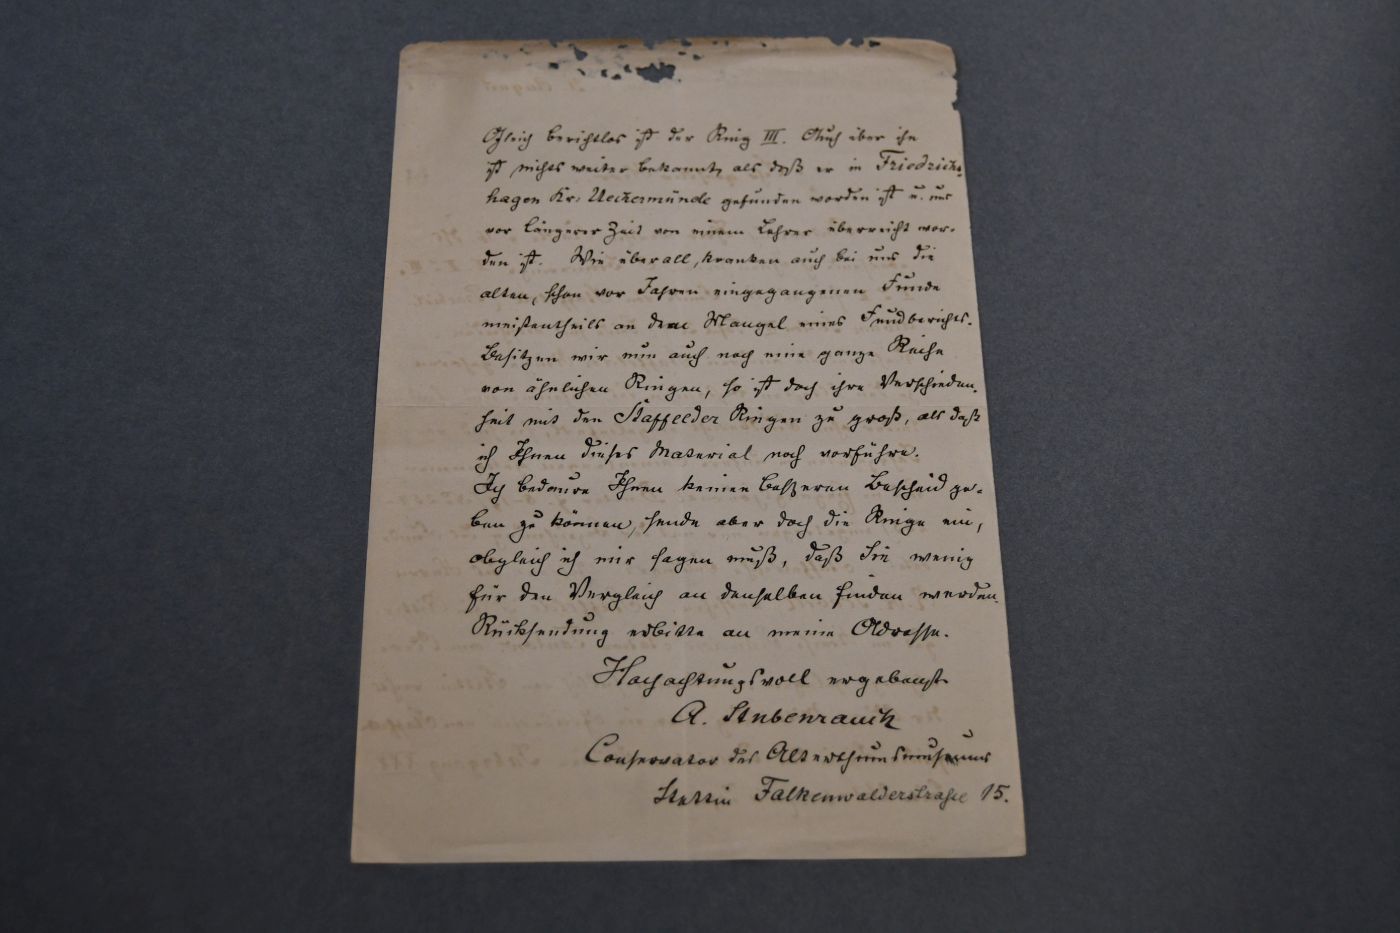 Gleich berichtlos ist der Ring III. Auch über ihn
ist nichts weiter bekannt, als daß er in Friedrichs-
hagen Kr. Ueckermünde gefunden worden ist u. uns
vor längerer Zeit von einem Lehrer überreicht wor-
den ist. Wie überall, kranken auch bei uns die
alten, schon vor Jahren eingegangenen Funde
meistentheils an dem Mangel eines Fundberichts.
Besitzen wir nun auch noch eine ganze Reihe
von ähnlichen Ringen, so ist doch ihre Verschieden-
heit mit den Staffelder Ringen zu groß, als daß
ich Ihnen dieses Material noch vorführe.
Ich bedaure Ihnen keinen besseren Bescheid ge-
ben zu können, sende aber doch die Ringe ein,
obgleich ich mir sagen muß, daß Sie wenig
für den Vergleich an denselben finden werden.
Rücksendung erbitte an meine Adresse.
Hochachtungsvoll ergebenst
A. Stubenrauch
Conservator des Alterthumsmuseums
Stettin Falkenwalderstraße 15.